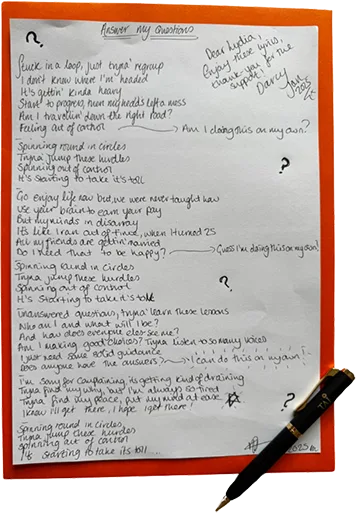 Answer My Questions
Dear Lydia,
Enjoy these lyrics,
thank you for the
support!
Darcy
Jan 2025
?
Stuck in a loop, just tryna' regroup
I don't know where I'm headed
It's gettin' kinda heavy
Start to progress, then my head's left a mess
Am I travellin' down the right road?
Feeling out of control → Am I doing this on my own?
Spinning round in circles
Tryna jump these hurdles
Spinning out of control
It's starting to take it's toll
?
Go enjoy life now but, we were never taught how
Use your brain to earn your pay
But my minds in disarray
It's like I ran out of time, when I turned 25
All my friends are gettin' married
Do I need that to be happy? → Guess I'm doing this on my own?
Spinning round in circles
Tryna jump these hurdles
Spinning out of control
It's starting to take it's toll
?
Unanswered questions, tryna' learn these lessons
Who am I and what will I be?
And how does everyone else see me?
Am I making good choices? Tryna listen to so many voices
I just need some solid guidance
Does anyone have the answers? → I can do this on my own!
I'm sorry for complaining, its getting kind of draining
Tryna find my why, but I'm always so tired
Tryna find my peace, put my mind at ease
I know I'll get there, I hope I get there!
?
Spinning round in circles
Tryna jump these hurdles
Spinning out of control
It's starting to take it's toll...
2025